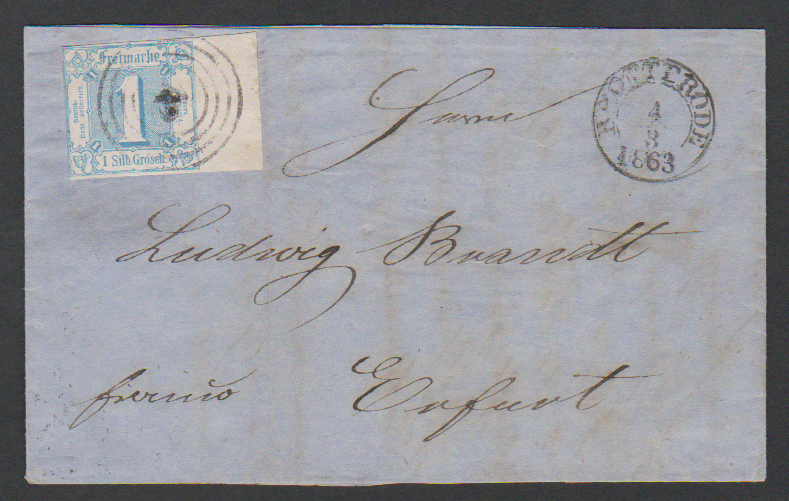 Freimarke
1
1 Silb. Grosch.
4
3
1863
Herrn
Ludwig Brandt
franco
Erfurt